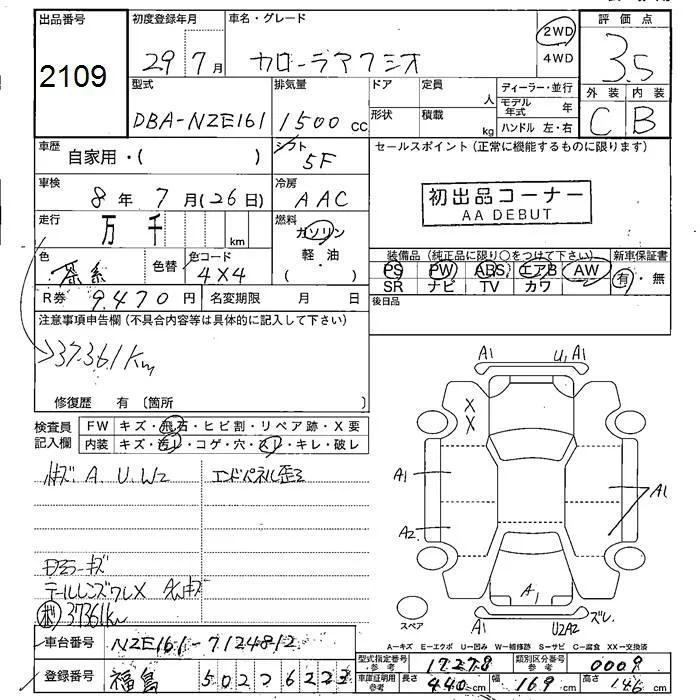 出品番号 初度登録年月 車名・グレード 評価点
2109 29 7月 カローラアクシオ 2WD 4WD 3.5
型式 排気量 ドア 定員 人 ディーラー・並行 外装 内装
DBA-NZE161 1500cc 形状 積載 kg モデル年式 年 ハンドル 左・右 C B
車歴 自家用・( ) シフト 5F セールスポイント(正常に機能するものに限ります)
車検 8年 7月(26日) 冷房 AAC 初出品コーナー
AA DEBUT
走行 万 千 km 燃料 ガソリン
軽・油
( )
色 色替 色コード 4X4 装備品(純正品に限り○をつけて下さい) 新車保証書
PS PW ABS エアB AW 有・無
SR ナビ TV カワ
R券 9,470円 名変期限 月 日 後日品
注意事項申告欄(不具合内容等は具体的に記入して下さい)
37361Km
修復歴 有〔箇所 〕
検査員記入欄 FW キズ・飛石・ヒビ割・リペア跡・X要
内装 キズ・汚レ・コゲ・穴・スレ・キレ・破レ
A1 U1 A1
X
X
A1 A1
A2
A1
A1 U2A2 ズレ
スペア
キズ A. U. W2 エンドパネル歪ミ
キズ
テールレンズワレX AWキズ
37361Km
A−キズ E−エクボ U−凹み W−補修跡 S−サビ C−腐食 XX−交換済
車台番号 NZE161-7124812
型式指定番号参考 17278 類別区分番号参考 0009
登録番号 福島 502 6222
車庫証明用参考 長さ 440cm 幅 169cm 高さ 146cm